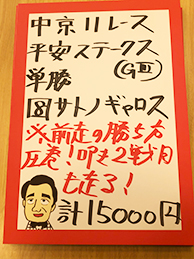 中京11レース
平安ステークス
(GⅢ)
単勝
⑧サトノギャロス
※前走の勝ち方
圧巻！叩き2戦目
も走る！
計15000円